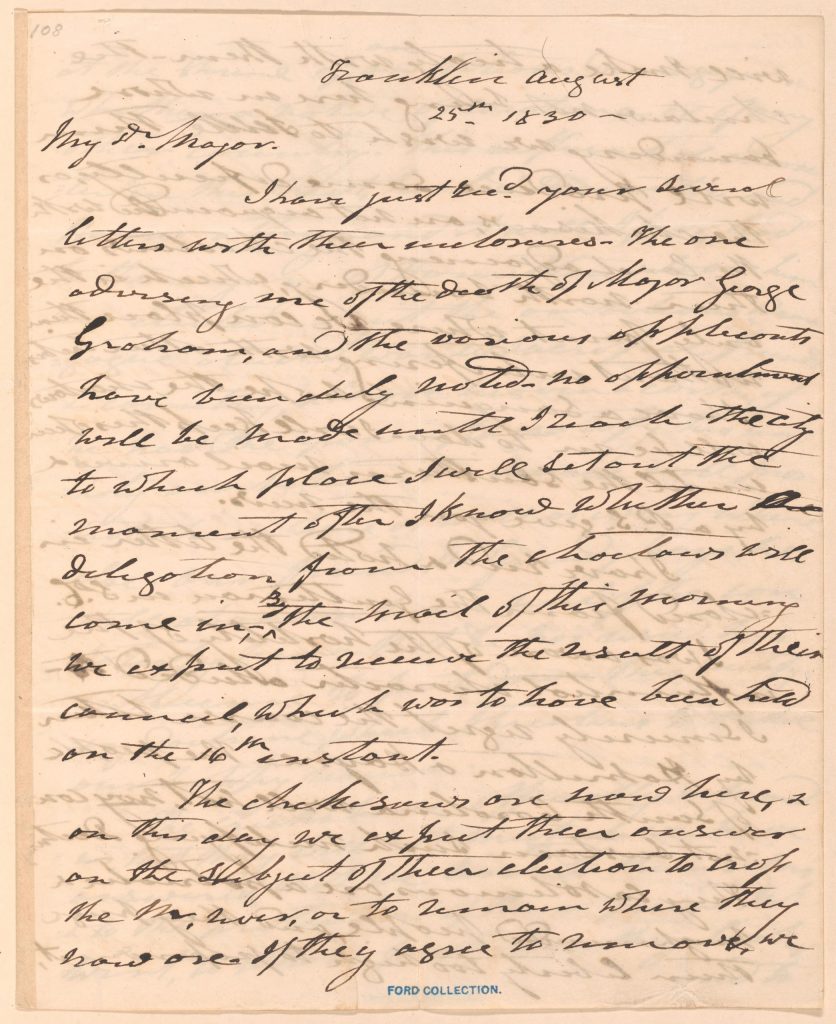 108
Franklin August
25th 1830 —
My Dr. Major.
I have just recd. your several
letters with their enclosures — The one
advising me of the death of Major George
Graham, and the various applicants
have been duly noted — no appointment
will be made until I reach the city
to which place I will set out the
moment after I know whether
deligation from the choctaws will
come in, — By the mail of this morning
we expect to receive the result of their
council, which was to have been held
on the 16th instant.
The chekesaws are now here, &
on this day we expect their answer
on the subject of their election to cross
the M, river, or to remain where they
now are. If they agree to remove, we
FORD COLLECTION.